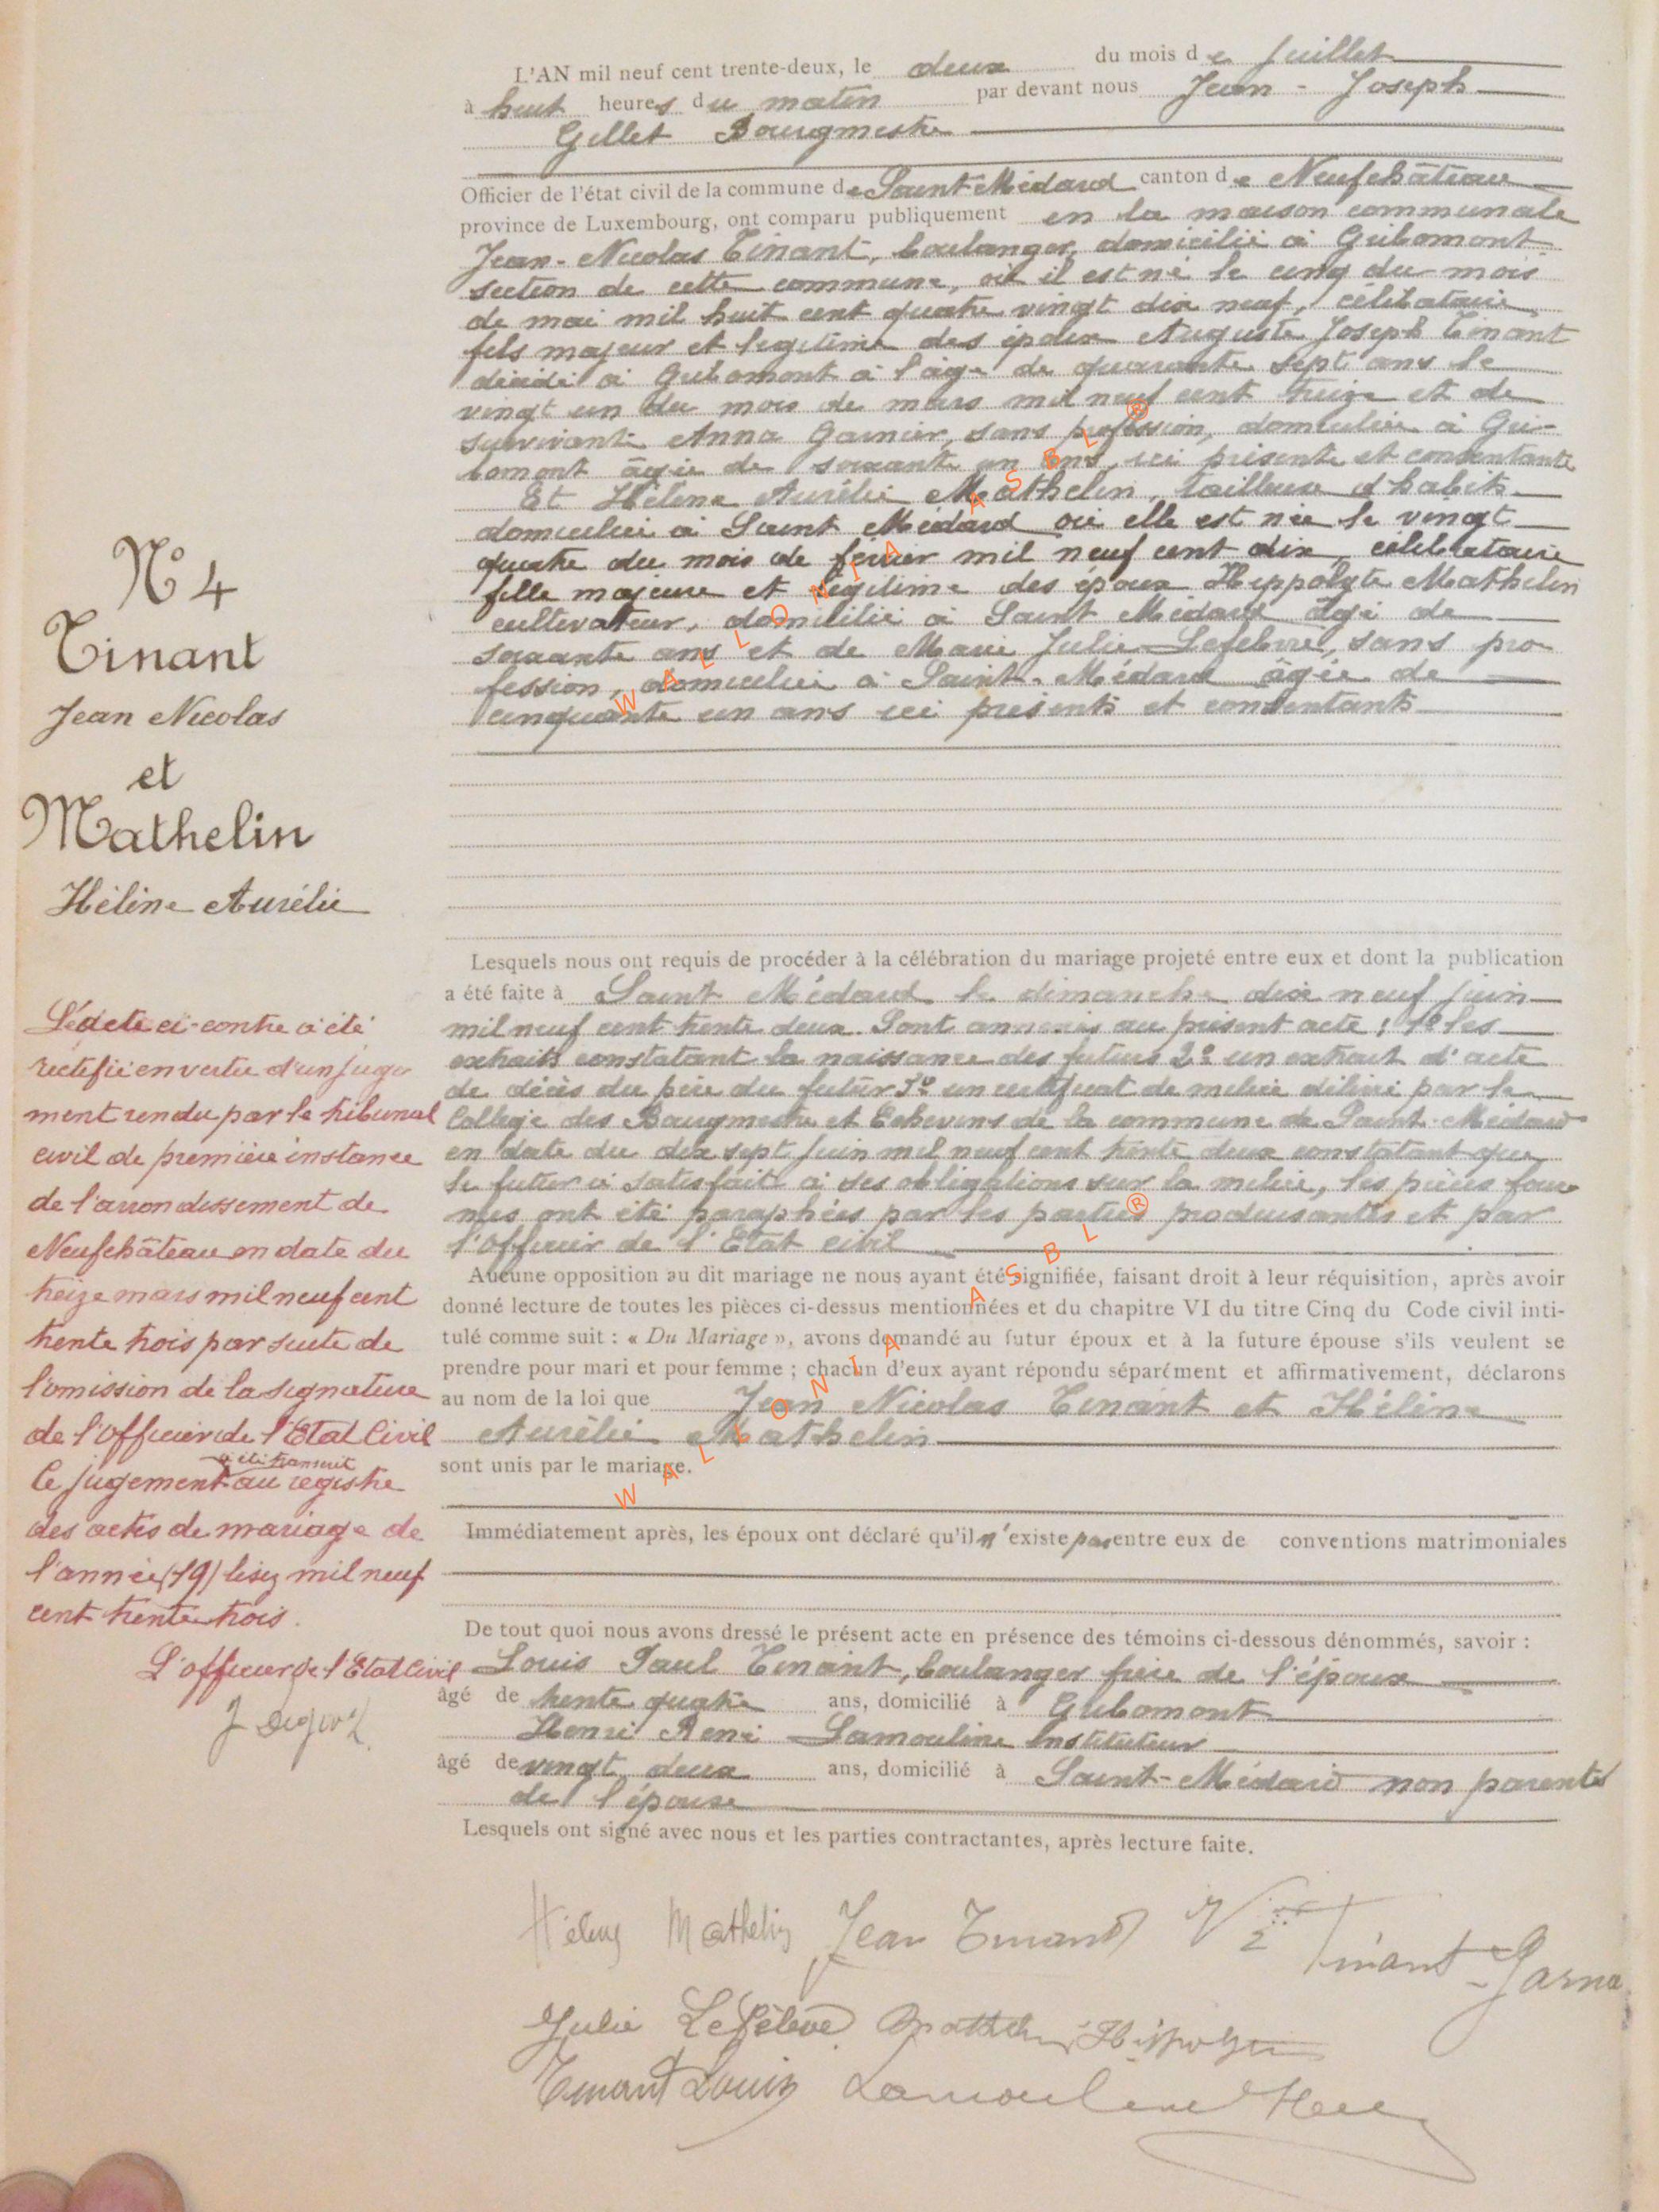 L'AN mil neuf cent trente-deux, le deux du mois de Juillet
à huit heures du matin par devant nous Jean - Joseph
Gillet Bourgmestre
Officier de l'état civil de la commune de Saint-Médard canton de Neufchâteau
province de Luxembourg, ont comparu publiquement en la maison communale
Jean-Nicolas Tinant, boulanger, domicilié à Gribomont
section de cette commune, où il est né le cinq du mois
de mai mil huit cent quatre vingt dix neuf, célibataire
fils majeur et légitime des époux Auguste Joseph Tinant
décédé à Gribomont à l'âge de quarante sept ans le
vingt un du mois de mars mil neuf cent treize et de
survivante Anna Garnier, sans profession, domiciliée à Gri-
bomont âgée de soixante un ans, ici présente et consentante
Et Hélène Aurélie Mathelin, tailleuse d'habits
domiciliée à Saint Médard où elle est née le vingt
quatre du mois de février mil neuf cent dix, célibataire
fille majeure et légitime des époux Hippolyte Mathelin
cultivateur, domicilié à Saint Médard âgé de
soixante ans et de Marie Julie Lefebvre, sans pro-
fession, domiciliée à Saint-Médard âgée de
cinquante un ans ici présents et consentants
N° 4
Tinant
Jean Nicolas
et
Mathelin
Hélène Aurélie
Lesquels nous ont requis de procéder à la célébration du mariage projeté entre eux et dont la publication
a été faite à Saint Médard le dimanche dix neuf juin
mil neuf cent trente deux. Sont annexés au présent acte : 1° les
extraits constatant la naissance des futurs 2° un extrait d'acte
de décès du père du futur 3° un certificat de milice délivré par le
Collège des Bourgmestre et Echevins de la commune de Saint-Médard
en date du dix sept juin mil neuf cent trente deux constatant que
le futur a satisfait à ses obligations sur la milice, les pièces four-
nies ont été paraphées par les parties produisantes et par
l'Officier de l'Etat civil
Aucune opposition au dit mariage ne nous ayant été signifiée, faisant droit à leur réquisition, après avoir
donné lecture de toutes les pièces ci-dessus mentionnées et du chapitre VI du titre Cinq du Code civil inti-
tulé comme suit : « Du Mariage », avons demandé au futur époux et à la future épouse s'ils veulent se
prendre pour mari et pour femme ; chacun d'eux ayant répondu séparément et affirmativement, déclarons
au nom de la loi que Jean Nicolas Tinant et Hélène
Aurélie Mathelin
sont unis par le mariage.
Immédiatement après, les époux ont déclaré qu'il n'existe pas entre eux de conventions matrimoniales
De tout quoi nous avons dressé le présent acte en présence des témoins ci-dessous dénommés, savoir :
Louis Paul Tinant, boulanger frère de l'époux
âgé de trente quatre ans, domicilié à Gribomont
Henri René Lamouline Instituteur
âgé de vingt deux ans, domicilié à Saint-Médard non parenté
de l'épouse
Lesquels ont signé avec nous et les parties contractantes, après lecture faite.
L'acte ci-contre a été
rectifié en vertu d'un juge
ment rendu par le tribunal
civil de première instance
de l'arrondissement de
Neufchâteau en date du
treize mars mil neuf cent
trente trois par suite de
l'omission de la signature
de l'Officier de l'Etat Civil
a été transcrit
Ce jugement au registre
des actes de mariage de
l'année (19) lisez mil neuf
cent trente trois.
L'officier de l'Etat Civil
Hélène Mathelin Jean Tinant Vve Tinant-Garnier
Julie Lefebvre Mathelin Hippolyte
Tinant Louis Lamouline Henri
WALLONIA ASBL ®
WALLONIA ASBL ®